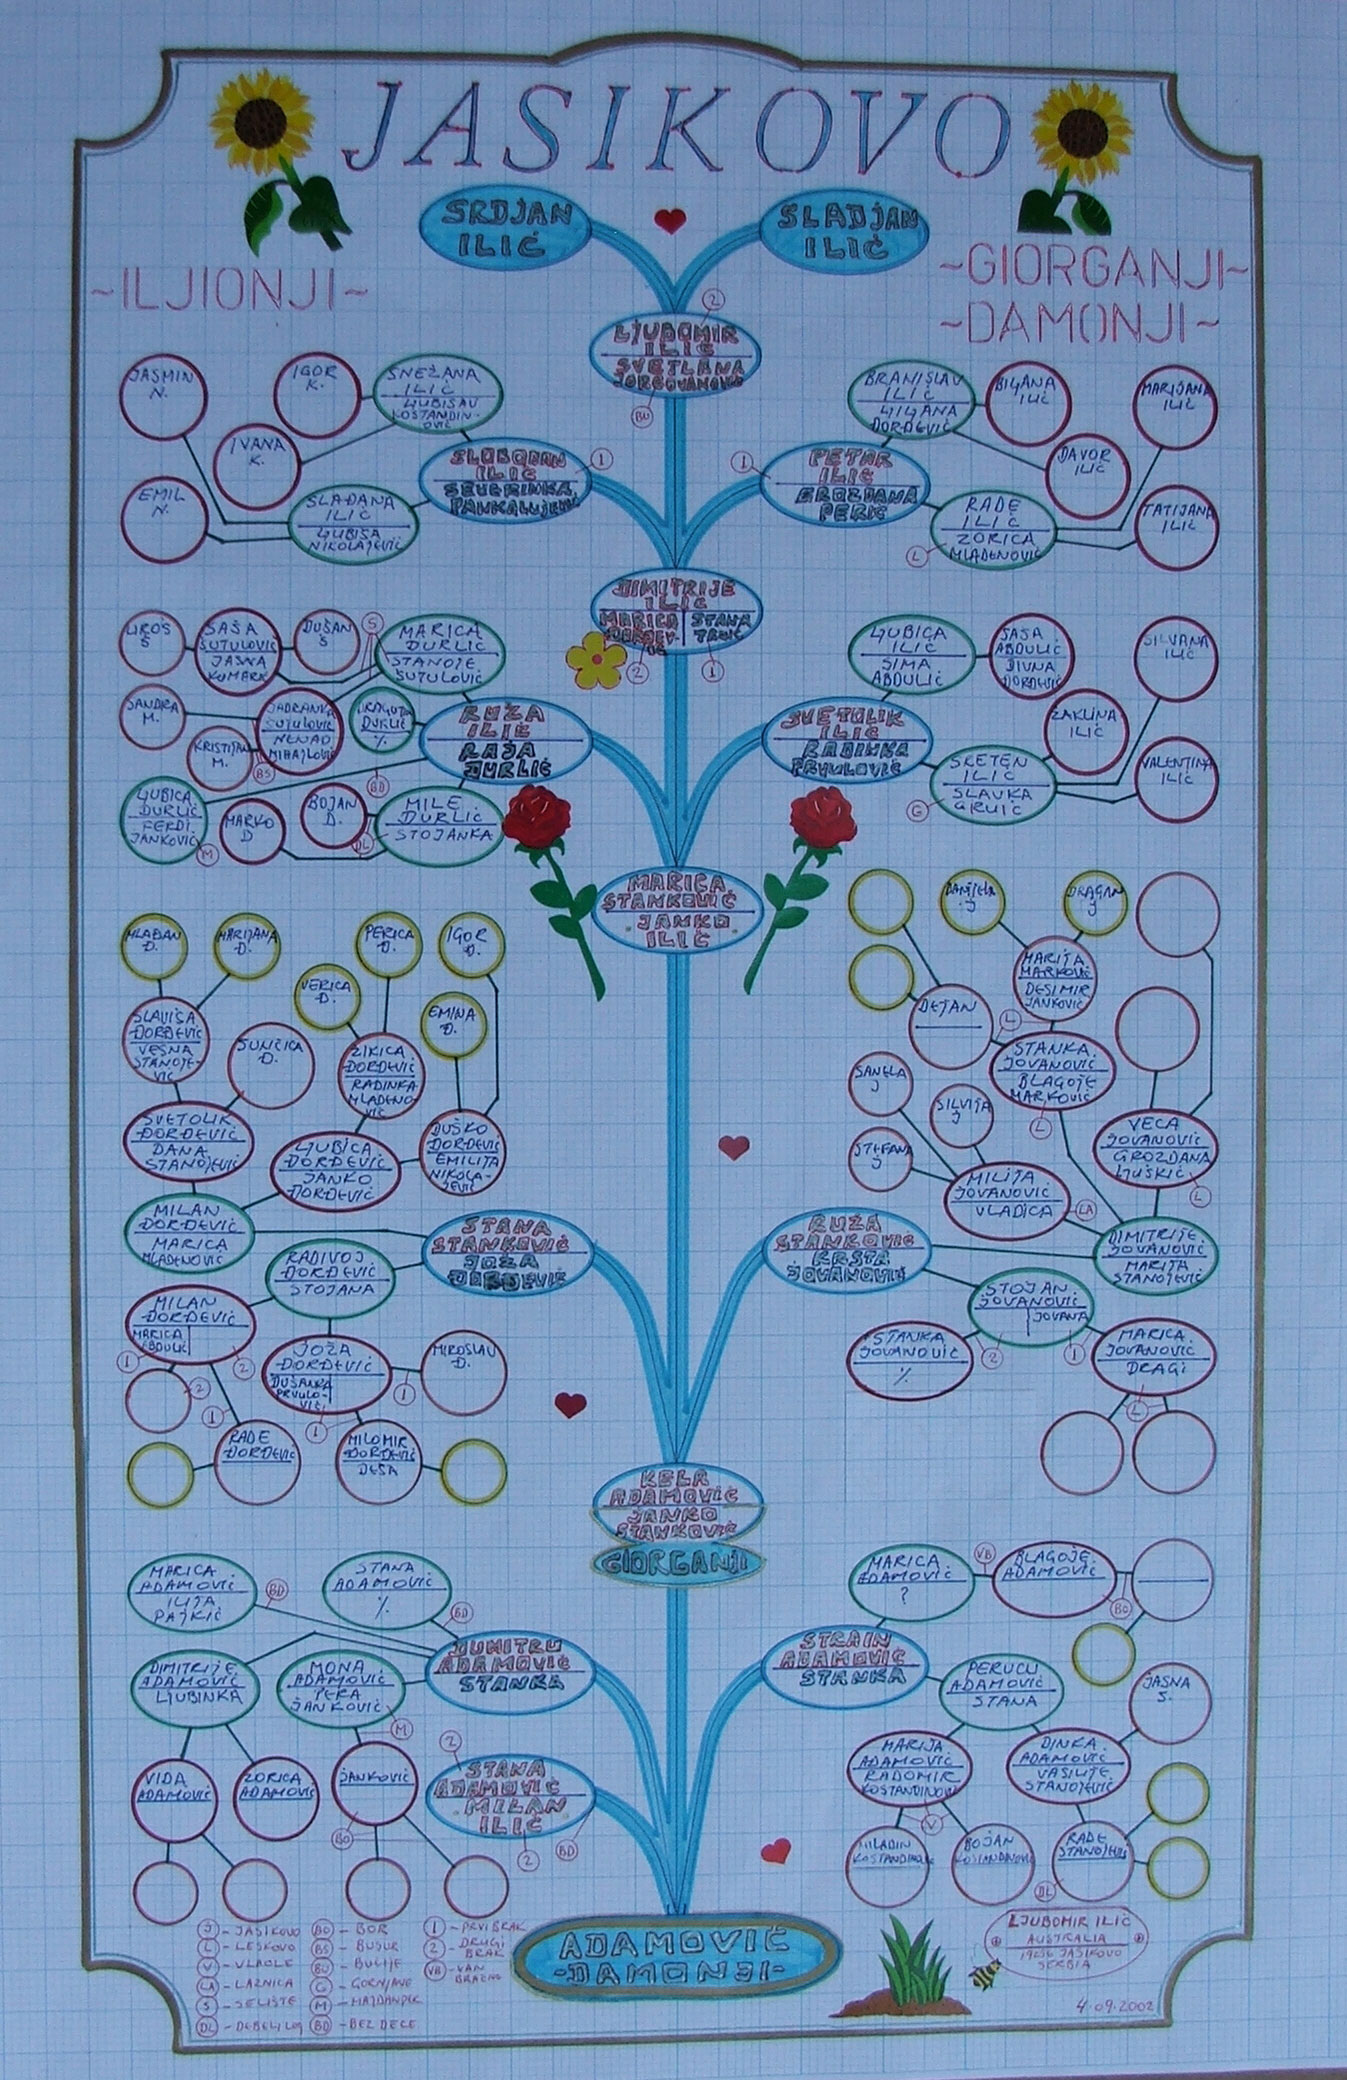 JASIKOVO
SRDJAN
ILIĆ
SLADJAN
ILIĆ
~ILJIONJI~
~GIORGANJI~
~DAMONJI~
LJUBOMIR
ILIĆ
SVETLANA
JORGOVANOVIĆ
2
BU
JASMIN
N.
IGOR
K.
SNEŽANA
ILIĆ
LJUBISAV
KOSTANDIN-
OVIĆ
IVANA
K.
EMIL
N.
SLAĐANA
ILIĆ
LJUBIŠA
NIKOLAJEVIĆ
SLOBODAN
ILIĆ
SEVERINKA
1
BRANISLAV
ILIĆ
LJILJANA
ĐORĐEVIĆ
BILJANA
ILIĆ
MARIJANA
ILIĆ
DAVOR
ILIĆ
PETAR
ILIĆ
GROZDANA
PERIĆ
1
RADE
ILIĆ
ZORICA
MLADENOVIĆ
L
TATIJANA
ILIĆ
DIMITRIJE
ILIĆ
MARICA
ĐORĐEV-
IĆ
STANA
2
1
UROŠ
Š
SAŠA
ŠUTULOVIĆ
JASNA
DUŠAN
Š
S
MARICA
DURLIĆ
STANOJE
ŠUTULOVIĆ
SANDRA
M.
JADRANKA
ŠUTULOVIĆ
NENAD
MIHAJLOVIĆ
KRISTIJAN
M.
BS
DURLIĆ
%
BD
RUŽA
ILIĆ
RAJA
DURLIĆ
LJUBICA
DURLIĆ
FERDI
JANKOVIĆ
M
MARKO
D
BOJAN
D.
DL
MILE
DURLIĆ
STOJANKA
LJUBICA
ILIĆ
SIMA
ABDULIĆ
SAŠA
ABDULIĆ
DIVNA
ĐORĐEVIĆ
SILVANA
ILIĆ
ŽAKLINA
ILIĆ
SVETOLIK
ILIĆ
RADINKA
PRVULOVIĆ
SRETEN
ILIĆ
SLAVKA
GRUIĆ
G
VALENTINA
ILIĆ
MARICA
STANKOVIĆ
JANKO
ILIĆ
MLAĐAN
Đ.
MARIJANA
Đ.
PERICA
Đ.
IGOR
Đ.
VERICA
Đ.
EMINA
Đ.
SLAVIŠA
ĐORĐEVIĆ
VESNA
STANOJE-
VIĆ
SUNČICA
Đ.
ŽIKICA
ĐORĐEVIĆ
RADINKA
MLADENO-
VIĆ
SVETOLIK
ĐORĐEVIĆ
DANA
STANOJEVIĆ
LJUBICA
ĐORĐEVIĆ
JANKO
ĐORĐEVIĆ
DUŠKO
ĐORĐEVIĆ
EMILIJA
NIKOLA-
JEVIĆ
MILAN
ĐORĐEVIĆ
MARICA
MLADENOVIĆ
STANA
STANKOVIĆ
JOŽA
ĐORĐEVIĆ
RADIVOJ
ĐORĐEVIĆ
STOJANA
MILAN
ĐORĐEVIĆ
MARICA
ABDULIĆ
1
2
2
1
JOŽA
ĐORĐEVIĆ
DUŠANKA
PRVULO-
VIĆ
1
1
MIROSLAV
Đ.
RADE
ĐORĐEVIĆ
MILOMIR
ĐORĐEVIĆ
DEŠA
DANIJELA
J
DRAGAN
J
MARIJA
MARKOVIĆ
DESIMIR
JANKOVIĆ
DEJAN
L
STANKA
JOVANOVIĆ
BLAGOJE
MARKOVIĆ
L
SANELA
J
SILVIJA
J
STEFANA
J
VECA
JOVANOVIĆ
GROZDANA
LJUŠKIĆ
L
MILIJA
JOVANOVIĆ
VLADICA
LA
RUŽA
STANKOVIĆ
KRSTA
JOVANOVIĆ
DIMITRIJE
JOVANOVIĆ
MARIJA
STANOJEVIĆ
STOJAN
JOVANOVIĆ
JOVANA
2
1
STANKA
JOVANOVIĆ
%
MARICA
JOVANOVIĆ
DRAGI
L
KELA
ADAMOVIĆ
JANKO
STANKOVIĆ
GIORGANJI
MARICA
ADAMOVIĆ
ILIJA
PAJKIĆ
BD
STANA
ADAMOVIĆ
%
BD
DUMITRU
ADAMOVIĆ
STANKA
DIMITRIJE
ADAMOVIĆ
LJUBINKA
MONA
ADAMOVIĆ
PERA
JANKOVIĆ
M
VIDA
ADAMOVIĆ
ZORICA
ADAMOVIĆ
JANKOVIĆ
BO
2
STANA
ADAMOVIĆ
MILAN
ILIĆ
2
BD
MARICA
ADAMOVIĆ
?
VB
BLAGOJE
ADAMOVIĆ
BO
STRAIN
ADAMOVIĆ
STANKA
PERUCU
ADAMOVIĆ
STANA
JASNA
S.
MARIJA
ADAMOVIĆ
RADOMIR
KOSTANDINOVIĆ
V
DINKA
ADAMOVIĆ
VASILIJE
STANOJEVIĆ
MILADIN
BOJAN
RADE
STANOJEVIĆ
DL
J - JASIKOVO
L - LESKOVO
V - VLAOLE
LA - LAZNICA
S - SELIŠTE
DL - DEBELI LUG
BO - BOR
BS - BUSUR
BU - BUČIJE
G - GORNJANE
M - MAJDANPEK
BD - BEZ DECE
1 - PRVI BRAK
2 - DRUGI
BRAK
VB - VAN
BRAČNO
ADAMOVIĆ
-DAMONJI-
LJUBOMIR ILIĆ
AUSTRALIA
19256 JASIKOVO
SERBIA
4.09.2002